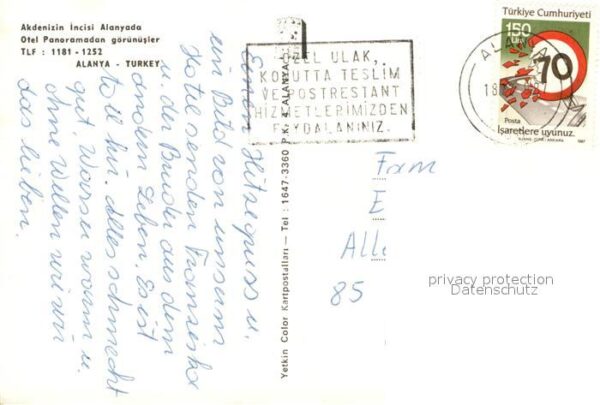 Akdenizin İncisi Alanyada
Otel Panoramadan görünüşler
TLF : 1181 - 1252
ALANYA - TURKEY
Einen Hitzegruss u.
ein Bild von unserm
Hotel senden
u. der Bruder aus dem
Leben. Es ist
toll hier. Alles schmeckt
gut Wasser warm u.
ohne Wellen wie wir
das lieben.
Yetkin Color Kartpostalları — Tel : 1647-3360 P.K. 4 ALANYA
ÖZEL ULAK,
KONUTTA TESLİM
VE POSTRESTANT
HİZMETLERİMİZDEN
FAYDALANINIZ.
Türkiye Cumhuriyeti
150
LİRA
70
Posta
İşaretlere uyunuz.
1987
ALANYA
18
Fam
E
Alle
85
privacy protection
Datenschutz